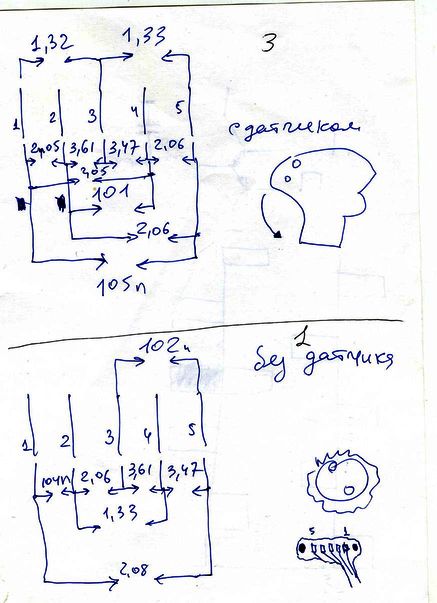 1,32 1,33 3
1 2 3 4 5
2,05 3,61 3,47 2,06
с датчиком
2,05
101
2,06
105п
1
102п без датчика
1 2 3 4 5
104п 2,06 3,61 3,47
1,33
5 1
2,08